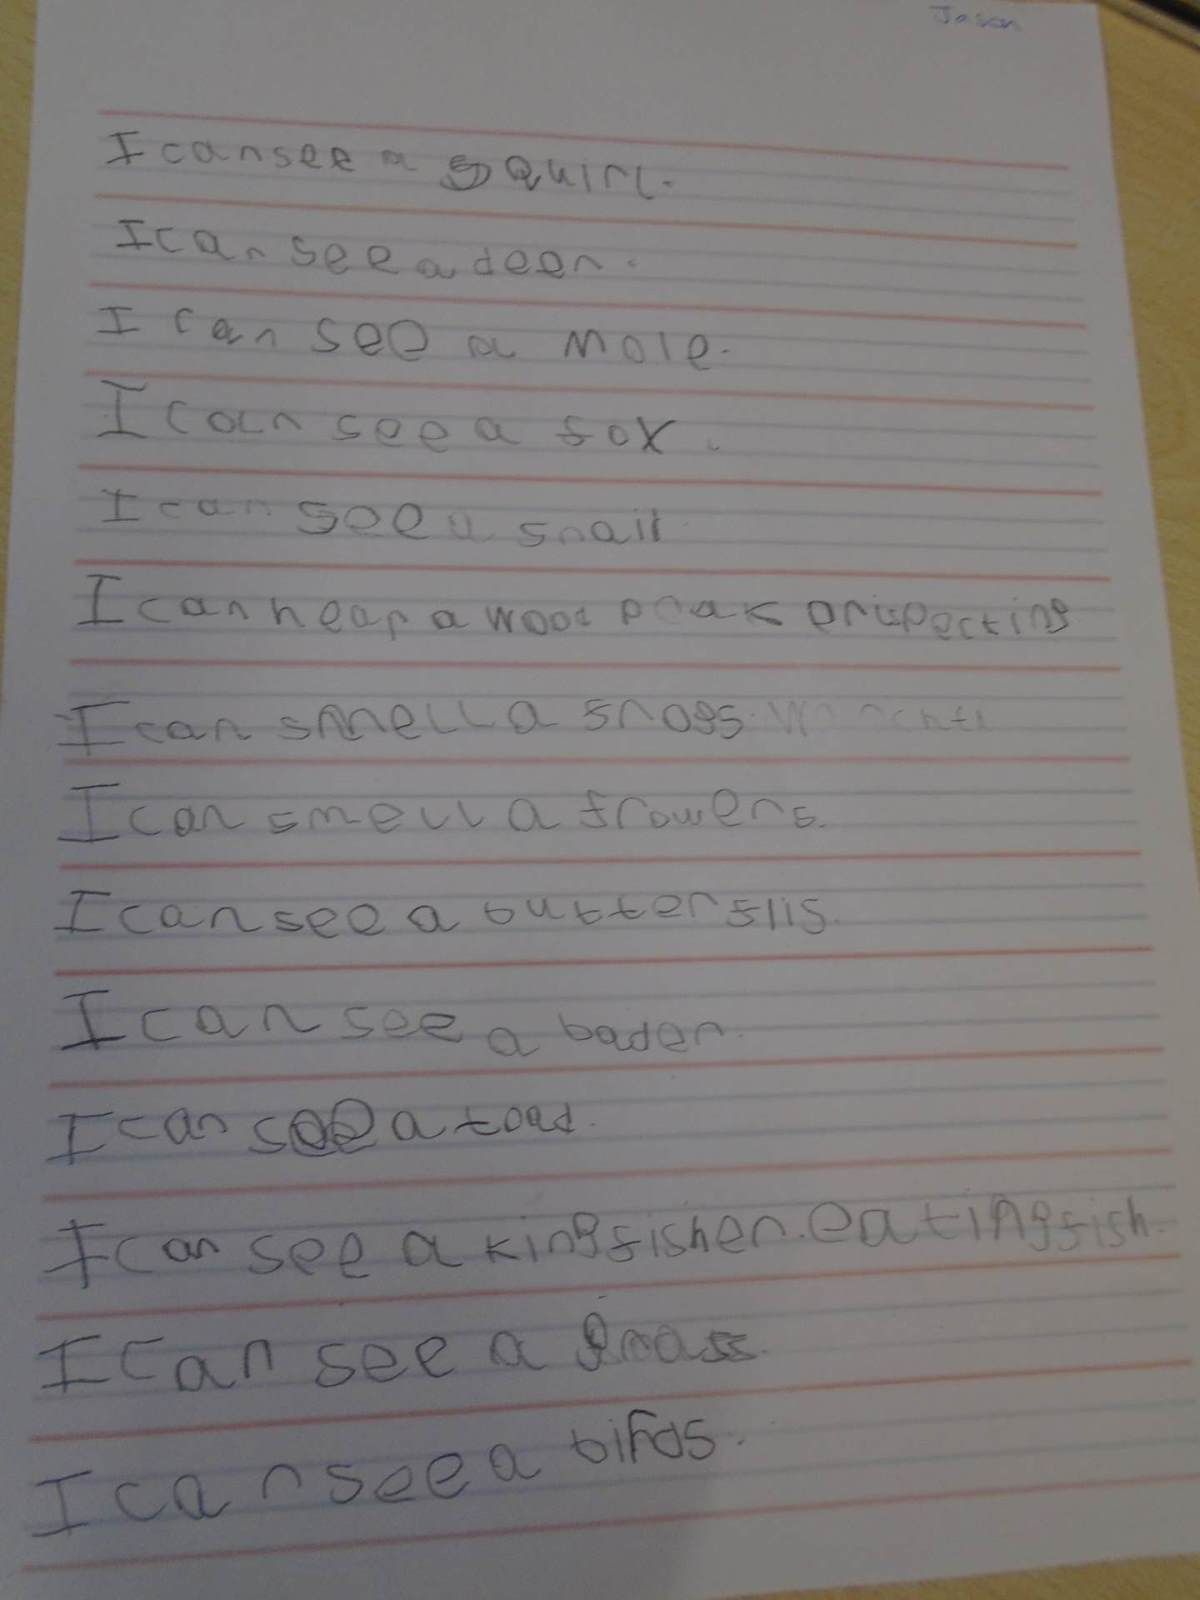 Jason
I can see a squirl.
I can see a deer.
I can see a mole.
I can see a fox.
I can see a snail
I can hear a wood peak pecting
I can smell a snogs.
I can smell a frowers.
I can see a butterflis.
I can see a bader.
I can see a toad.
I can see a kingfisher.eating fish.
I can see a grass.
I can see a birds.